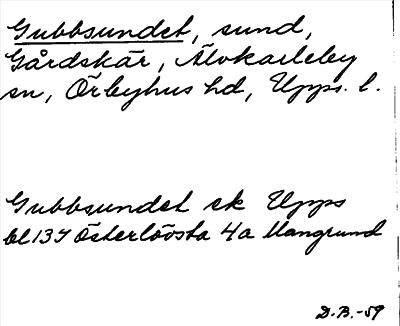 Gubbsundet, sund,
Gårdskär, Älvkarleby
sn, Örbyhus hd, Upps. l.
Gubbsundet ek Upps
bl 137 Österlövsta 4a Mangrund
D.B.-59